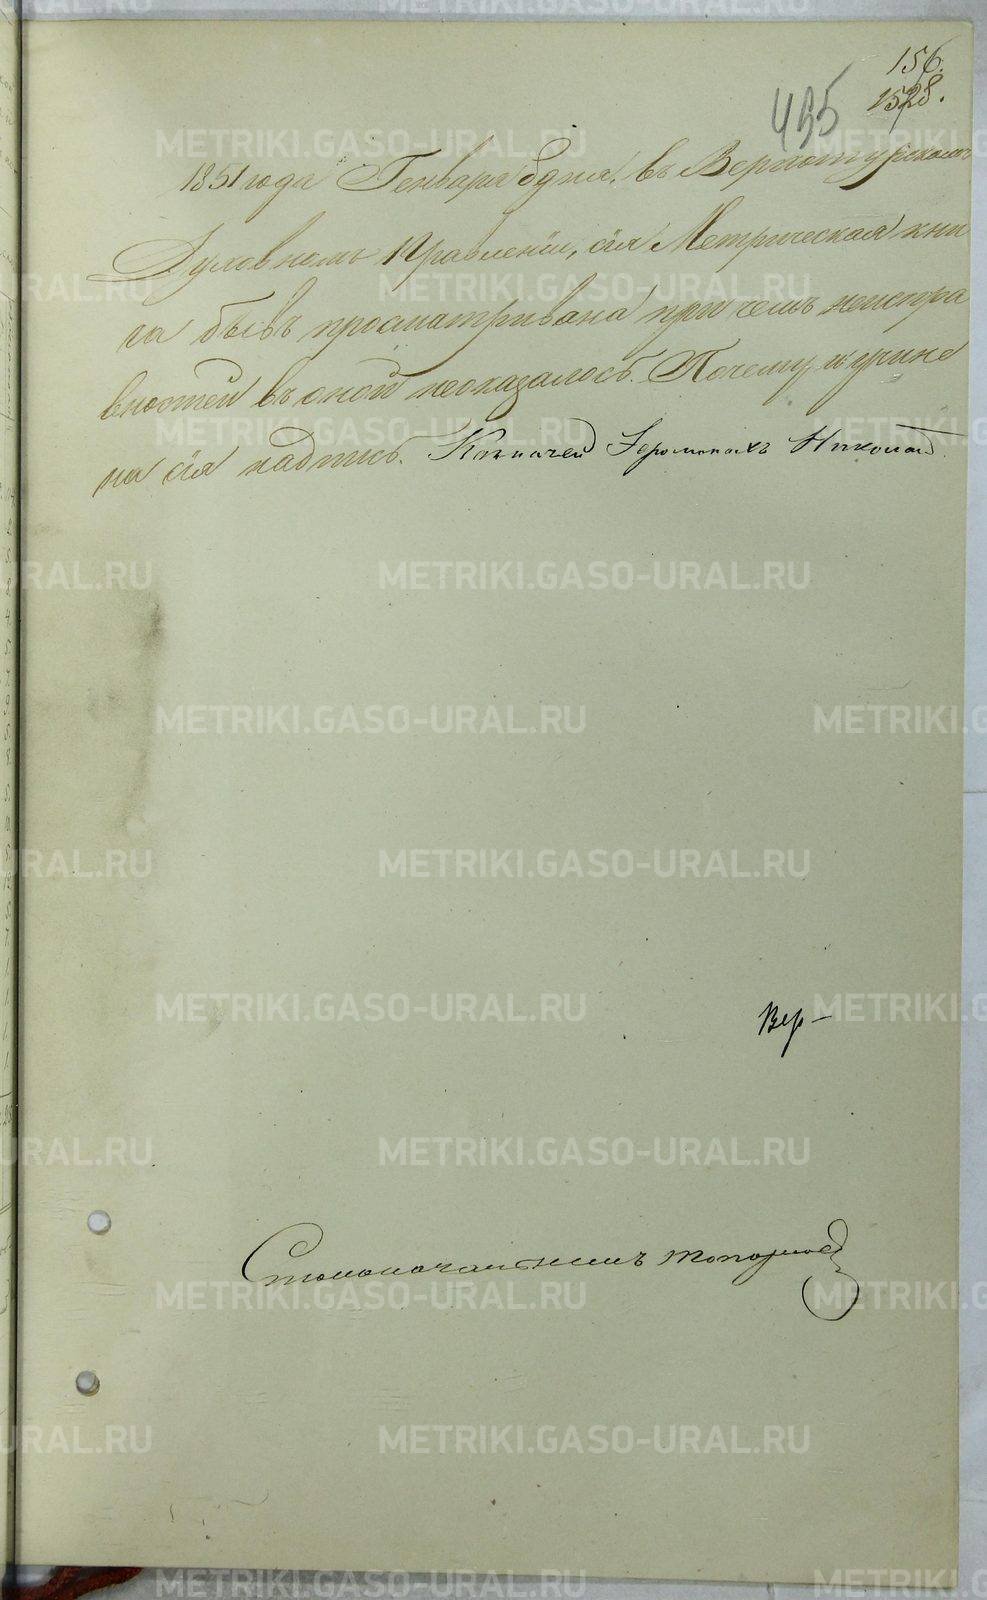 156.
1528.
455
1851 года Генваря 8 дня, въ Верхотурскомъ
Духовномъ Правленіи, сія Метрическая кни
га бывъ просматривана при чемъ неиспра
вностей въ оной неоказалось. Почему и учине
на сія надпись. Казначей Іеромонахъ Николай
Вер-
Столоначальникъ Топорковъ